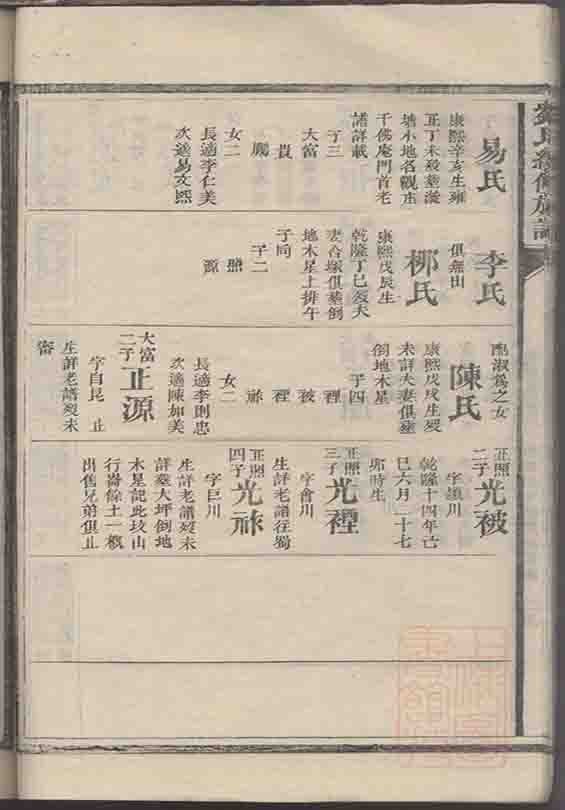 易氏
康熙辛亥生雍
正丁未歿葬㵎
塘小地名觀庄
千佛庵門首老
譜詳載
子三
大富
貴
女二
長適李仁美
次適易文熙
李氏
俱無出
柳氏
康熙戊辰生
乾隆丁巳歿夫
妻合塚俱葬倒
地木星上排午
子向
子二
照
源
配淑為之女
陳氏
康熙戊戌生歿
未詳夫妻俱葬
倒地木星
子四
禋
被
裡
祢
女二
長適李則忠
次適陳如美
大富
二子
正源
字自昆 止
生詳老譜歿未
審
正照
二子
光被
字鎮川
乾隆十四年己
巳六月二十七
卯時生
正照
三子
光裡
字會川
生詳老譜往蜀
正照
四子
光祢
字巨川
生詳老譜歿未
詳葬大坪倒地
木星記此坟山
行崙餘土一概
出售兄弟俱止